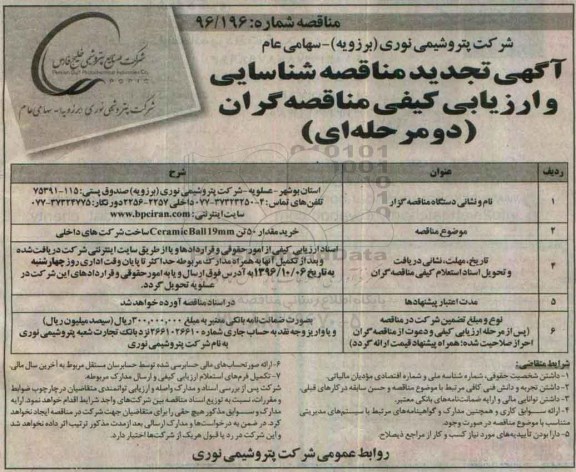 مناقصه شماره: ۹۶/۱۹۶
شرکت صنایع پتروشیمی خلیج فارس
Persian Gulf Petrochemical Industries Co.
PGPIC
شرکت پتروشیمی نوری (برزویه) - سهامی عام
شرکت پتروشیمی نوری (برزویه) - سهامی عام
آگهی تجدید مناقصه شناسایی
و ارزیابی کیفی مناقصه گران
(دو مرحله‌ای)
ردیف عنوان شرح
۱ نام و نشانی دستگاه مناقصه گزار
استان بوشهر - عسلویه - شرکت پتروشیمی نوری (برزویه) صندوق پستی: ۱۱۵-۷۵۳۹۱
تلفن های تماس: ۴-۳۷۳۲۳۲۵۰-۰۷۷ داخلی ۲۲۵۷-۲۲۵۶ دورنگار: ۳۷۳۲۴۷۷۵-۰۷۷
سایت اینترنتی: www.bpciran.com
۲ موضوع مناقصه خرید مقدار ۵۰ تن Ceramic Ball 19mm ساخت شرکت های داخلی
۴ تاریخ، مهلت، نشانی دریافت
و تحویل اسناد استعلام کیفی مناقصه گران
اسناد ارزیابی کیفی از امور حقوقی و قراردادها و یا از طریق سایت اینترنتی شرکت دریافت شده
و بعد از تکمیل آنها به همراه مدارک مربوطه حداکثر تا پایان وقت اداری روز چهارشنبه
به تاریخ ۱۳۹۶/۱۰/۰۶ به آدرس فوق ارسال و یا به امور حقوقی و قراردادهای این شرکت در
عسلویه تحویل گردد.
۵ مدت اعتبار پیشنهادها در اسناد مناقصه آورده خواهد شد
۶ نوع و مبلغ تضمین شرکت در مناقصه
(پس از مرحله ارزیابی کیفی و دعوت از مناقصه گران
احراز صلاحیت شده؛ همراه پیشنهاد قیمت ارائه گردد)
بصورت ضمانت‌نامه بانکی معتبر به مبلغ ۳۰۰,۰۰۰,۰۰۰ ریال (سیصد میلیون ریال)
و یا واریز وجه نقد به حساب جاری شماره ۲۶۶۱۰۲۶۶۱۰ نزد بانک تجارت شعبه پتروشیمی نوری
به نام شرکت پتروشیمی نوری
شرایط متقاضی:
۱- داشتن شخصیت حقوقی، شماره شناسه ملی و شماره اقتصادی مؤدیان مالیاتی.
۲- داشتن تجربه و دانش فنی کافی مرتبط با موضوع مناقصه و حسن سابقه در کارهای قبلی.
۳- داشتن توانایی مالی و ارایه ضمانت‌نامه‌های بانکی معتبر.
۴- ارائه سوابق کاری و همچنین مدارک و گواهینامه‌های مرتبط با سیستم‌های مدیریتی
متناسب با موضوع مناقصه در صورت وجود.
۵- دارا بودن تأییدیه‌های مورد نیاز کسب و کار از مراجع ذیصلاح.
۶- ارائه صورتحساب‌های مالی حسابرسی شده توسط حسابرسان مستقل مربوط به آخرین سال مالی.
۷- تکمیل فرم‌های استعلام ارزیابی کیفی و ارسال مدارک مربوطه.
شرکت پس از بررسی اسناد و مدارک واصله و ارزیابی توانمندی متقاضیان در چارچوب ضوابط
و مقررات، نسبت به توزیع اسناد مناقصه بین شرکت‌های واجد شرایط اقدام خواهد نمود. ارایه
مدارک و سوابق مذکور هیچ حقی را برای متقاضیان جهت شرکت در مناقصه ایجاد نخواهد
کرد. در ضمن به درخواست‌ها و مدارک ارسالی بعد از مدت مذکور ترتیب اثر داده نخواهد شد
و این شرکت در رد یا قبول هریک از شرکت‌ها اختیار دارد.
روابط عمومی شرکت پتروشیمی نوری